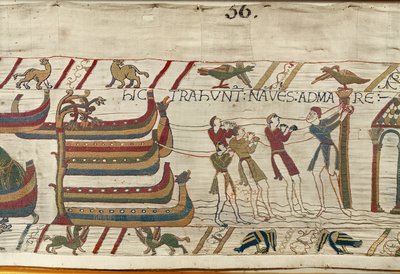 56.
HIC TRAHVNT: NAVES: AD MARE: